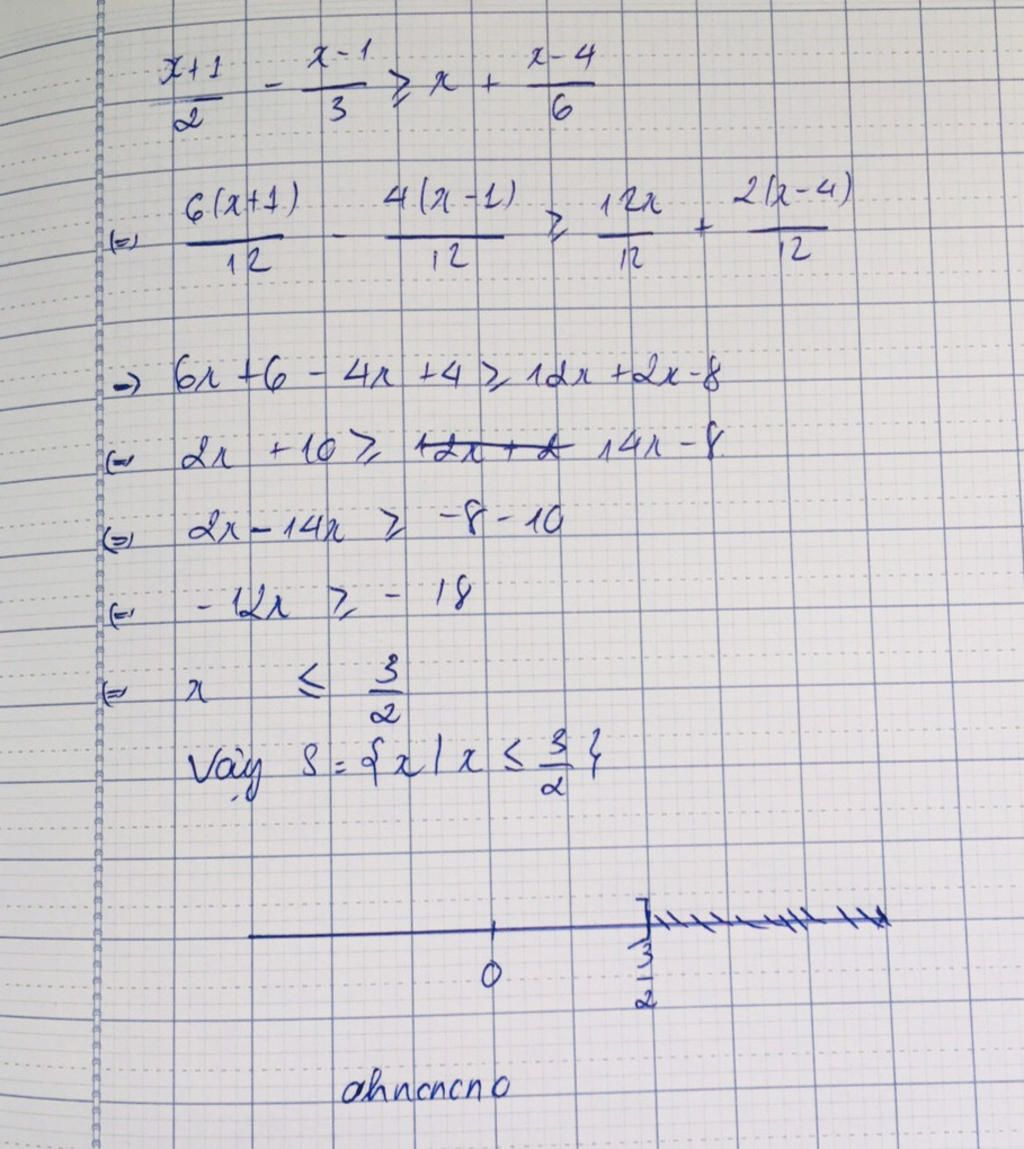 x+1/2 - x-1/3 ≥ x + x-4/6
(=) 6(x+1)/12 - 4(x-1)/12 ≥ 12x/12 + 2(x-4)/12
=) 6x+6 - 4x +4 ≥ 12x +2x-8
(= 2x +10 ≥ 12x + 2 14x - 8
(=) 2x - 14x ≥ -8 - 10
(= - 12x ≥ - 18
(= x ≤ 3/2
Vậy S = {x | x ≤ 3/2}
0 ] 3/2
ahncncno